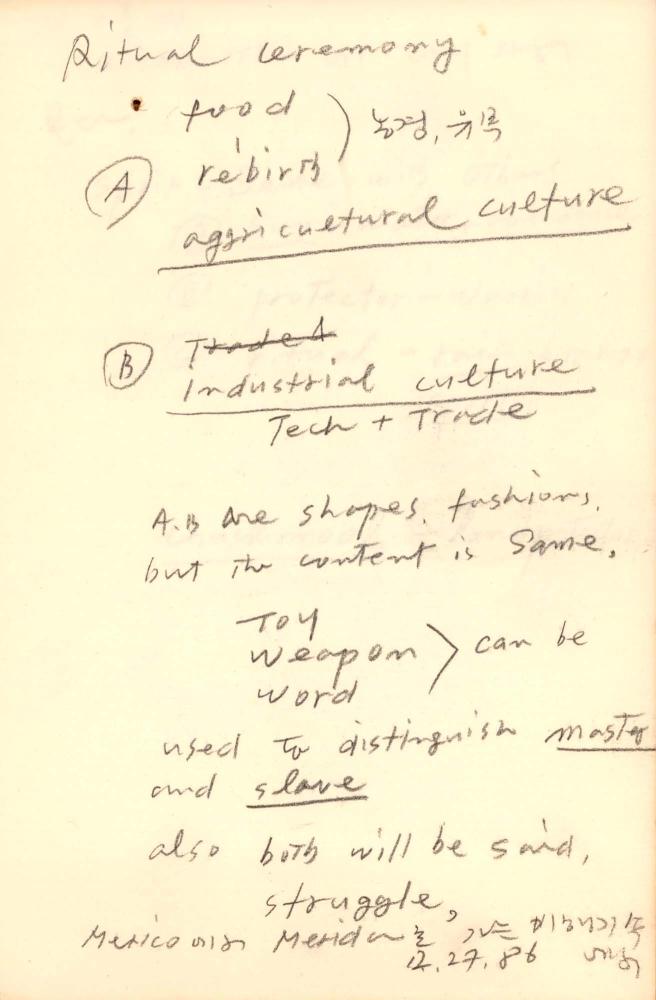 Ritual ceremony
food
rebirth
농경, 유목
Ⓐ
aggricultural culture
Ⓑ Trade &
Industrial culture
Tech + Trade
A.B Are shapes, fashions,
but the content is Same.
Toy
Weapon
Word
can be
used to distinguish master
and slave
also both will be said,
struggle,
Mexico에서 Merida를 가는 비행기 속
12.27.86 에서